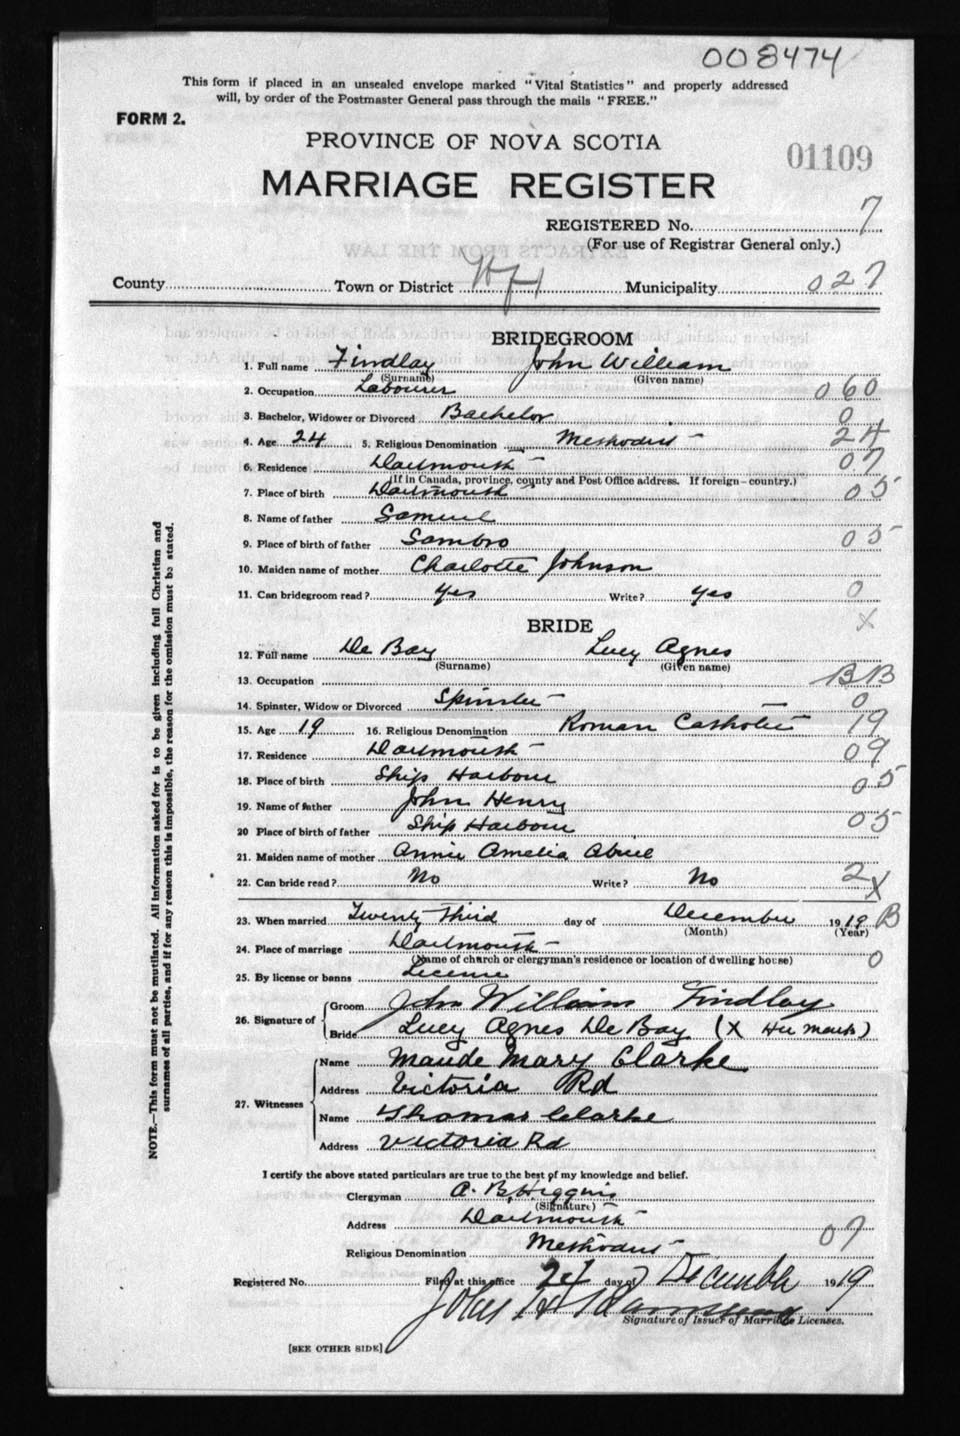 008474
This form if placed in an unsealed envelope marked "Vital Statistics" and properly addressed
will, by order of the Postmaster General pass through the mails "FREE."
FORM 2.
PROVINCE OF NOVA SCOTIA
01109
MARRIAGE REGISTER
REGISTERED No. 7
(For use of Registrar General only.)
County Town or District Municipality 027
BRIDEGROOM
1. Full name Findlay John William
(Surname) (Given name)
2. Occupation Labourer 060
3. Bachelor, Widower or Divorced Bachelor 0
4. Age 24 5. Religious Denomination Methodist 24
6. Residence Dartmouth 07
(If in Canada, province, county and Post Office address. If foreign-country.)
7. Place of birth Dartmouth 05
8. Name of father Samuel
9. Place of birth of father Sambro 05
10. Maiden name of mother Charlotte Johnson
11. Can bridegroom read? yes Write? yes 0
X
BRIDE
12. Full name De Bay Lucy Agnes
(Surname) (Given name)
13. Occupation BB
14. Spinster, Widow or Divorced Spinster 0
15. Age 19 16. Religious Denomination Roman Catholic 19
17. Residence Dartmouth 09
18. Place of birth Ship Harbour 05
19. Name of father John Henry
20 Place of birth of father Ship Harbour 05
21. Maiden name of mother Annie Amelia
22. Can bride read? No Write? No 2 X
23. When married Twenty Third day of December 1919 B
(Month) (Year)
24. Place of marriage Dartmouth 0
(Name of church or clergyman's residence or location of dwelling house)
25. By license or banns License
26. Signature of Groom John William Findlay
Bride Lucy Agnes De Bay (X Her mark)
27. Witnesses Name Maude Mary Clarke
Address Victoria Rd
Name Thomas Clarke
Address Victoria Rd
I certify the above stated particulars are true to the best of my knowledge and belief.
Clergyman A. B. Higgins
(Signature)
Address Dartmouth
Religious Denomination Methodist 07
Registered No. Filed at this office 24 day of December 1919
John
Signature of Issuer of Marriage Licenses.
[SEE OTHER SIDE]
NOTE.—This form must not be mutilated. All information asked for is to be given including full Christian and
surnames of all parties, and if for any reason this is impossible, the reason for the omission must be stated.